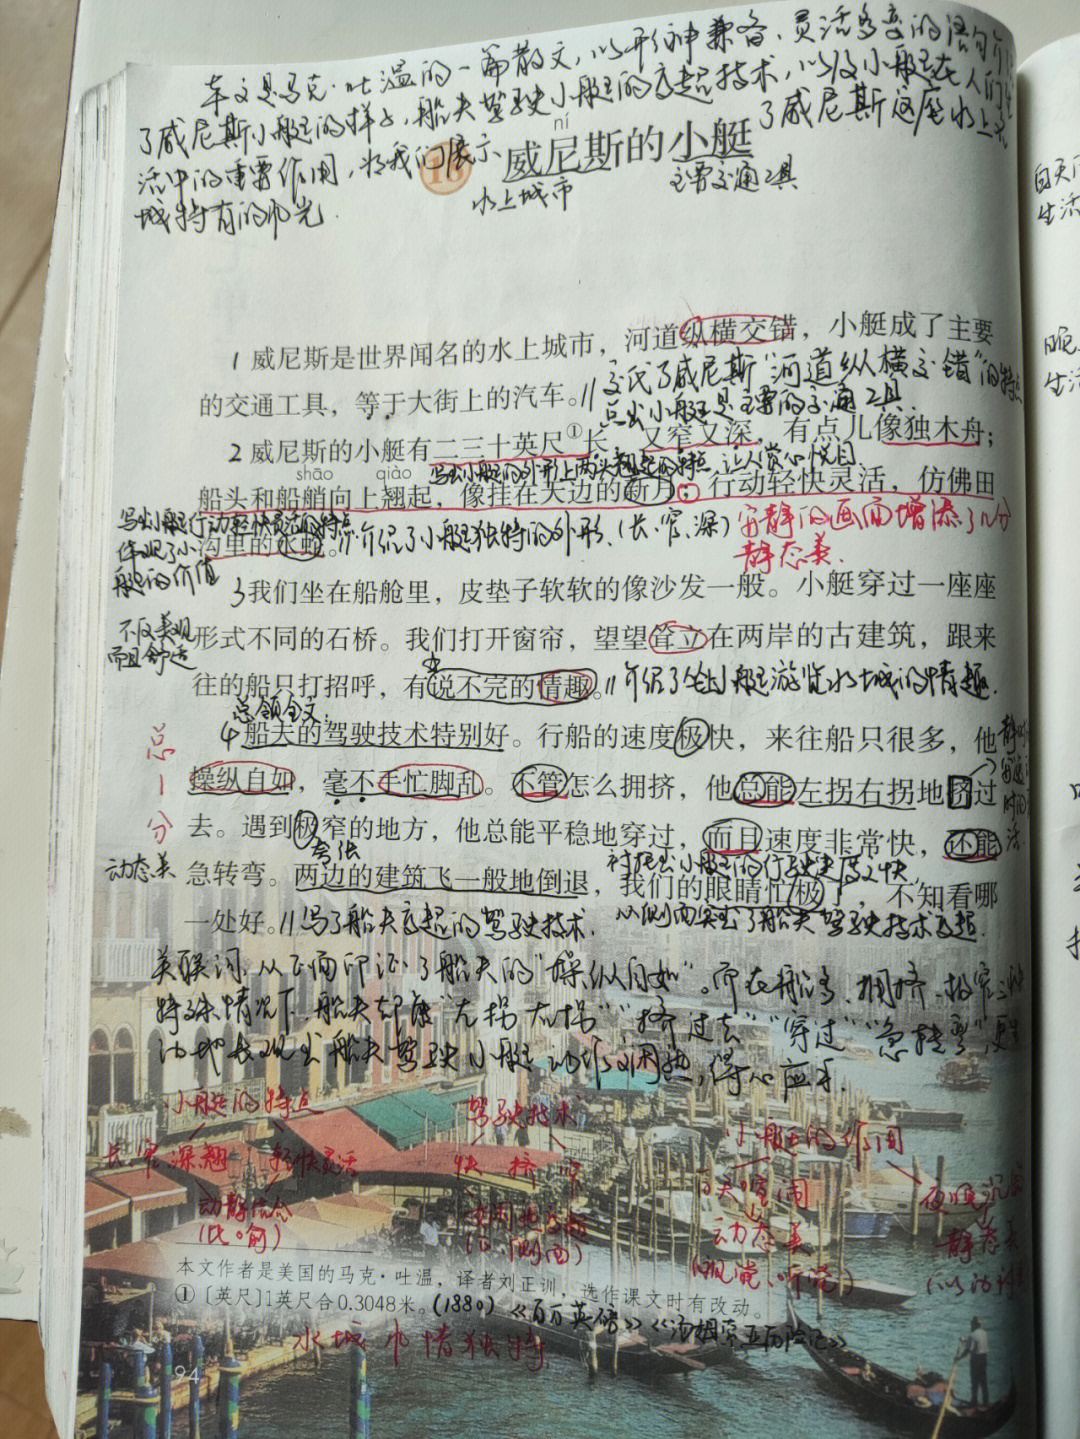 本文是马克·吐温的一篇散文,以形神兼备、灵活多变的语句介绍
了威尼斯小艇的样子,船夫驾驶小艇的高超技术,以及小艇在人们生
活中的重要作用,为我们展示了威尼斯这座水上名
城特有的风光.
18 威尼斯的小艇
ní
水上城市
主要交通工具
1 威尼斯是世界闻名的水上城市,河道纵横交错,小艇成了主要
的交通工具,等于大街上的汽车。//交代了威尼斯"河道纵横交错"的特点
点出小艇是主要的交通工具.
2 威尼斯的小艇有二三十英尺①长,又窄又深,有点儿像独木舟;
shāo qiào
写出小艇的外形上两头翘起的特点,让人赏心悦目
船头和船艄向上翘起,像挂在天边的新月;行动轻快灵活,仿佛田
写出小艇行动轻快灵活的特点
体现了小艇的价值
沟里的水蛇。//介绍了小艇独特的外形.(长、窄、深)
安静的画面增添了几分
静态美.
3 我们坐在船舱里,皮垫子软软的像沙发一般。小艇穿过一座座
不仅美观
而且舒适
形式不同的石桥。我们打开窗帘,望望耸立在两岸的古建筑,跟来
往的船只打招呼,有说不完的情趣。//介绍了坐小艇游览水城的情趣.
总领全文.
4 船夫的驾驶技术特别好。行船的速度极快,来往船只很多,他
总—分
操纵自如,毫不手忙脚乱。不管怎么拥挤,他总能左拐右拐地挤过
去。遇到极窄的地方,他总能平稳地穿过,而且速度非常快,还能
夸张
衬托出小艇的行驶速度之快,
动态美
急转弯。两边的建筑飞一般地倒退,我们的眼睛忙极了,不知看哪
从侧面突出了船夫驾驶技术高超.
一处好。//写了船夫高超的驾驶技术.
关联词,从正面印证了船夫的"操纵自如"。而在船多、拥挤、极窄
特殊情况下,船夫却能"左拐右拐""挤过去""穿过""急转弯",更生
动地表现出船夫驾驶小艇动作娴熟,得心应手.
小艇的特点
长 窄 深 翘 轻快灵活
动静结合
(比喻)
驾驶技术
快 挤
(侧面)
小艇的作用
白天喧闹
动态美
夜晚沉寂
静态美
本文作者是美国的马克·吐温,译者刘正训,选作课文时有改动。
① 〔英尺〕1英尺合0.3048米。(1880)《百万英镑》《汤姆索亚历险记》
水城 风情独特
94
白天
生活
晚
生活